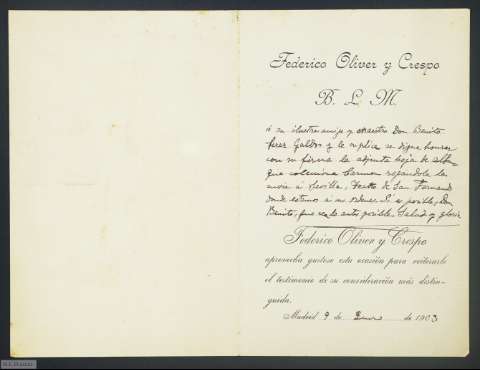 Federico Oliver y Crespo
B. L. M.
á su ilustre amigo y maestro Don Benito
Perez Galdós y le suplica se digne honrar
con su firma la adjunta hoja de album
que colecciona Carmen rogándole la
envie á Sevilla, Teatro de San Fernando
donde estamos á sus ordenes. Si es posible, Don
Benito, que sea lo antes posible. Salud y gloria
Federico Oliver y Crespo
aprovecha gustoso esta ocasión para reiterarle
el testimonio de su consideración más distin-
guida.
Madrid 9 de Enero de 1903